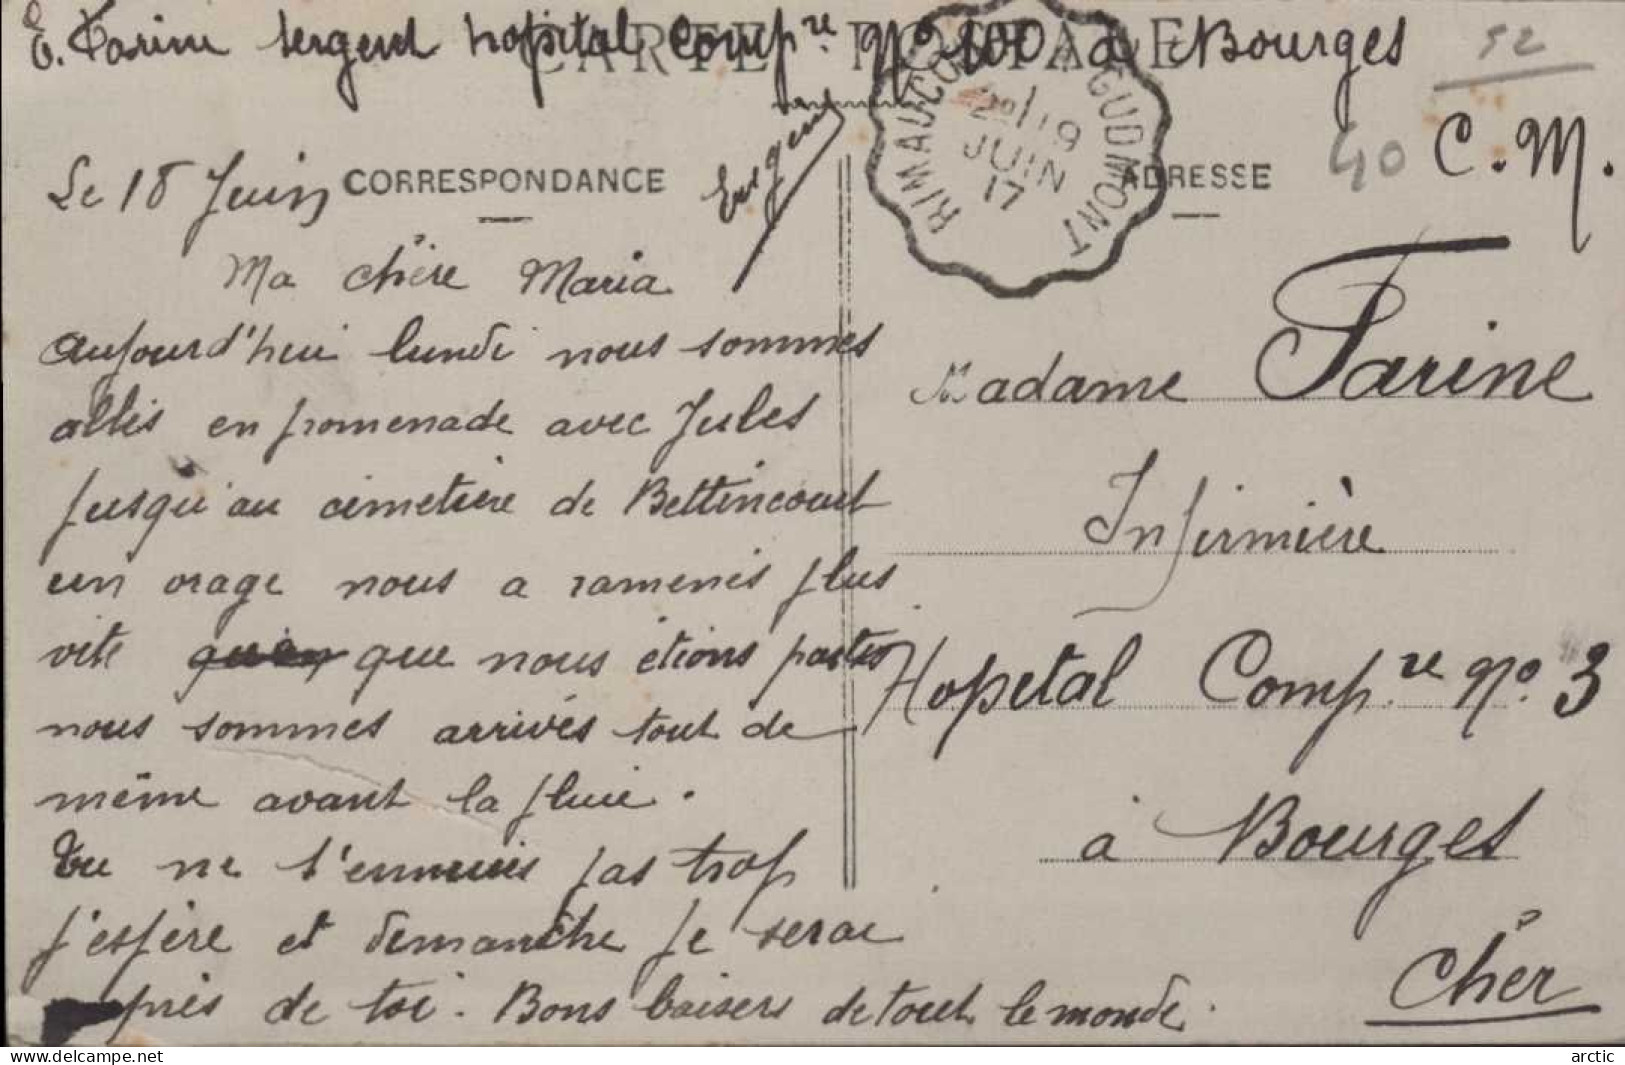 E. Farine sergent hopital Comp.re No 100 à Bourges
CARTE POSTALE
52
40
C. M.
RIMAUCOURT A GUDMONT
2°/19
JUIN
17
Le 18 Juin
CORRESPONDANCE
Eugene
ADRESSE
Ma chère Maria
aujourd'hui lundi nous sommes
allés en promenade avec Jules
jusqu'au cimetière de Bettincourt
un orage nous a ramenés plus
vite que nous étions partis
nous sommes arrivés tout de
même avant la pluie.
Tu ne t'ennuis pas trop
j'espère et demanche je serai
près de toi. Bons baisers de tout le monde.
Madame Farine
Infirmière
Hopital Comp.re No. 3
à Bourges
Cher
arctic